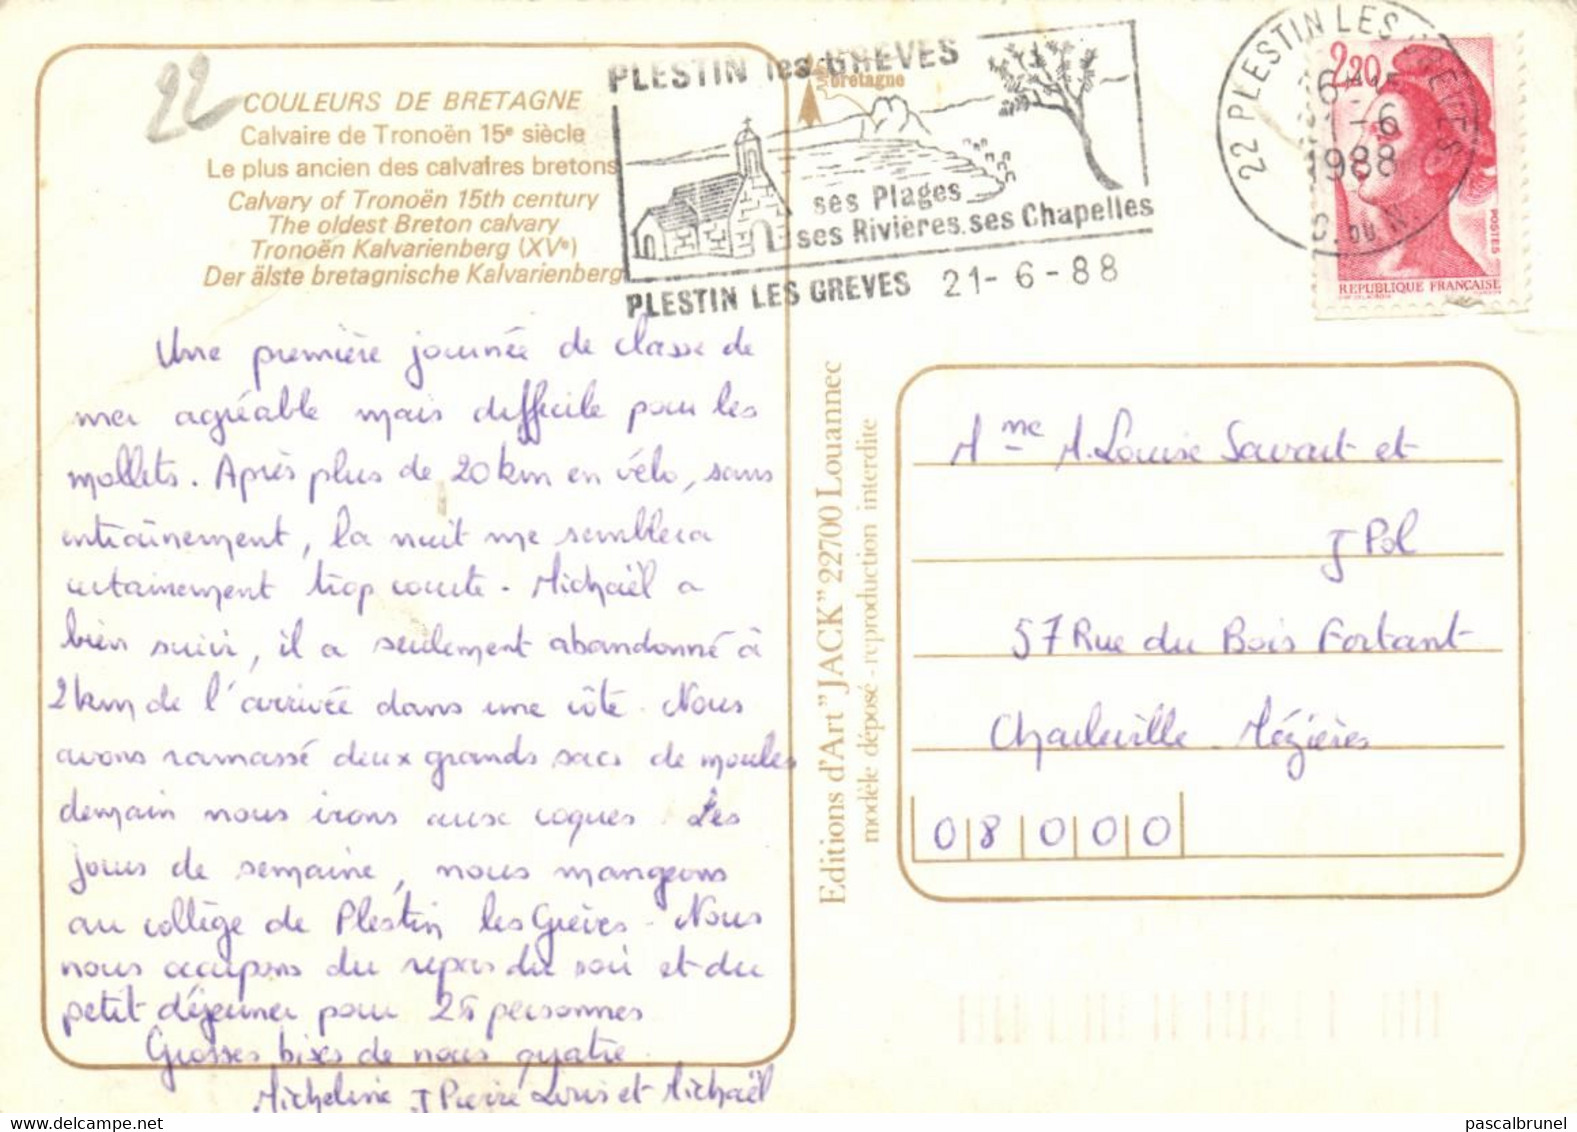 22
COULEURS DE BRETAGNE
Calvaire de Tronoën 15e siècle
Le plus ancien des calvaires bretons
Calvary of Tronoën 15th century
The oldest Breton calvary
Tronoën Kalvarienberg (XVe)
Der älste bretagnische Kalvarienberg
PLESTIN les GREVES
bretagne
ses Plages
ses Rivières, ses Chapelles
PLESTIN LES GREVES 21-6-88
22 PLESTIN LES GREVES
21-6
1988
C. DU N.
2,20
POSTES
REPUBLIQUE FRANÇAISE
Une première journée de classe de
mer agréable mais difficile pour les
mollets. Après plus de 20 km en vélo, sans
entraînement, la nuit me semblera
certainement trop courte. Michaël a
bien suivi, il a seulement abandonné à
2 km de l'arrivée dans une côte. Nous
avons ramassé deux grands sacs de moules
demain nous irons aux coques. Les
jours de semaine, nous mangeons
au collège de Plestin les Grèves. Nous
nous occupons du repas du soir et du
petit déjeuner pour 25 personnes
Grosses bises de nous quatre.
Micheline J Pierre Loris et Michaël
Editions d'Art "JACK" 22700 Louannec
modèle déposé - reproduction interdite
Mme M. Louise Savart et
J Pol
57 Rue du Bois Fortant
Charleville-Mézières
08000
pascalbrunel
delcampe.net